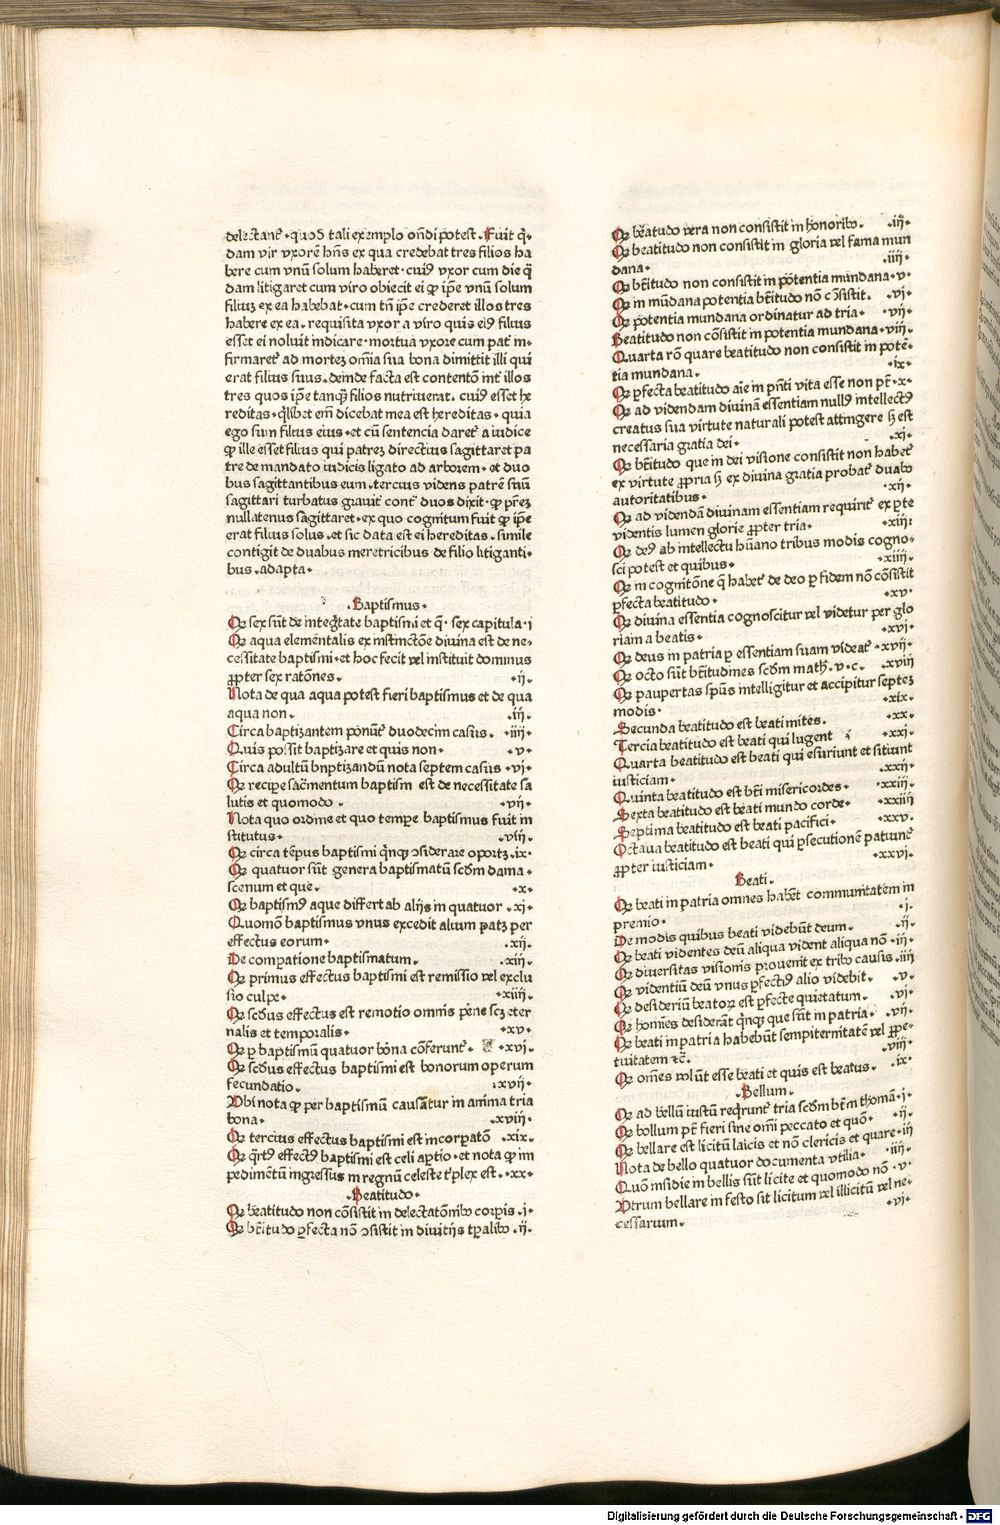 delectant᷑ · quod tali exemplo ond̄i potest . Fuit q̄·
dam vir vxorē hn̄s ex qua credebat tres filios ha
bere cum vnū solum haberet · cuiꝰ vxor cum die q̄
dam litigaret cum viro obiecit ei ꝙ ip̄e vnū solum
filiuꝫ ex ea habebat · cum tn̄ ip̄e crederet illos tres
habere ex ea . requisita vxor a viro quis eiꝰ filius
esset ei noluit indicare · mortua vxore cum pat᷑ in·
firmaret᷑ ad morteꝫ om̄ia sua bona dimittit illi qui
erat filius suus . deinde facta est contentō int᷑ illos
tres quos ip̄e tanqꝫ filios nutriuerat . cuiꝰ esset he
reditas · qͥlibet em̄ dicebat mea est hereditas · quia
ego sum filius eius · et cū sentencia daret᷑ a iudice
ꝙ ille esset filius qui patreꝫ directius sagittaret pa
tre de mandato iudicis ligato ad arborem · et duo
bus sagittantibus eum . tercius videns patrē suū
sagittari turbatus grauit᷑ cont᷑ duos dixit · ꝙ pr̄eꝫ
nullatenus sagittaret · ex quo cognitum fuit ꝙ ip̄e
erat filius solus · et sic data est ei hereditas . simile
contigit de duabus meretricibus de filio litiganti·
bus . adapta ·
· Baptismus ·
Qꝫ sex sūt de integͥtate baptismi et q̄· sex capitula · i
Qꝫ aqua elementalis ex instinctōne diuina est de ne·
cessitate baptismi · et hoc fecit vel instituit dominus
ꝓpter sex ratōnes . · ij .
Nota de qua aqua potest fieri baptismus et de qua
aqua non . . iij .
Circa baptizantem ponūt᷑ duodecim casus . · iiij ·
Quis possit baptizare et quis non · · v ·
Circa adultū bnptizandū nota septem casus · vi ·
Qꝫ recipe sac̄mentum baptism est de necessitate sa
lutis et quomodo . · vij ·
Nota quo ordine et quo tempe baptismus fuit in
stitutus · . viij .
Qꝫ circa tēpus baptismi qͥnqꝫ ↄsiderare oportꝫ . ix ·
Qꝫ quatuor sūt genera baptismatū scd̄m dama ·
scenum et que . · x ·
Qꝫ baptismꝰ aque differt ab alijs in quatuor . xj ·
Quomō baptismus vnus excedit alium patꝫ per
effectus eorum · . xij .
De compatione baptismatum . . xiij .
Qꝫ primus effectus baptismi est remissio vel exclu
sio culpe · · xiiij ·
Qꝫ scd̄us effectus est remotio omnis pene scꝫ eter
nalis et temporalis · · xv ·
Qꝫ ꝑ baptismū quatuor bona cōferunt᷑ . · xvi .
Qꝫ scd̄us effectus baptismi est bonorum operum
fecundatio . . xvij ·
Vbi nota ꝙ per baptismū causātur in anima tria
bona · . xviij ·
Qꝫ tercius effectus baptismi est incorpatō . xix .
Qꝫ qͣrtꝰ effectꝰ baptismi est celi aptio · et nota ꝙ im
pedimētū ingressus in regnū celeste tͥplex est . · xx ·
· Beatitudo ·
Qꝫ beatitudo non cōsistit in delectatōnibꝫ corpis . i ·
Qꝫ bt̄itudo ꝑfecta nō ↄsistit in diuitijs tꝑalibꝫ . ij .
Qꝫ bēatudo vera non consistit in honoribꝫ . · iij ·
Qꝫ beatitudo non consistit in gloria vel fama mun
dana · · iiij ·
Qꝫ bt̄itudo non consistit in potentia mundana · v ·
Qꝫ in mūdana potentia bt̄itudo nō cōsistit . · vi ·
Qꝫ potentia mundana ordinatur ad tria · · vij ·
Beatitudo non cōsistit in potentia mundana · viij ·
Quarta rō quare beatitudo non consistit in potē·
tia mundana . · ix ·
Qꝫ ꝑfecta beatitudo aīe in pn̄ti vita esse non pt̄ · x ·
Qꝫ ad videndam diuinā essentiam nullꝰ intellectꝰ
creatus sua virtute naturali potest attingere sꝫ est
necessaria gratia dei · · xj ·
Qꝫ bt̄itudo que in dei visione consistit non habet᷑
ex virtute ꝓpria sꝫ ex diuina gratia probat᷑ duabꝫ
autoritatibus · · xij ·
Qꝫ ad videndā diuinam essentiam requirit᷑ ex pte
videntis lumen glorie ꝓpter tria · · xiij ·
Qꝫ deꝰ ab intellectu hūano tribus modis cogno·
sci potest et quibus · · xiiij ·
Qꝫ in cognitōne q̄ habet᷑ de deo ꝑ fidem nō cōsistit
ꝑfecta beatitudo · · xv ·
Qꝫ diuina essentia cognoscitur vel videtur per glo
riam a beatis · · xvi ·
Qꝫ deus in patria ꝑ essentiam suam videat᷑ · xvij ·
Qꝫ octo sūt bt̄itudines scd̄m math̄ . v · c . · xviij
Qꝫ paupertas spūs intelligitur et accipitur septeꝫ
modis · · xix ·
Secunda beatitudo est beati mites . · xx ·
Tercia beatitudo est beati qui lugent · xxi ·
Quarta beatitudo est beati qui esuriunt et sitiunt
iusticiam · · xxij ·
Quinta beatitudo est bt̄i misericordes · · xxiij ·
Sexta beatitudo est beati mundo corde · · xxiiij
Septima beatitudo est beati pacifici · · xxv ·
Octaua beatitudo est beati qui ꝑsecutionē patiunt᷑
ꝓpter iusticiam · · xxvi ·
Beati .
Qꝫ beati in patria omnes habēt communitatem in
premio · · i ·
De modis quibus beati videbūt deum . . ij .
Qꝫ beati videntes deū aliqua vident aliqua nō · iij ·
Qꝫ diuersitas visionis prouenit ex tribꝫ causis . iiij
Qꝫ videntiū deū vnus ꝑfectiꝰ alio videbit . · v ·
Qꝫ desideriū beatoꝝ est ꝑfecte quietatum . · vi ·
Qꝫ homines desiderāt qͥnqꝫ que sūt in patria · . vij ·
Qꝫ beati in patria habebūt sempiternitatē vel ꝓpe·
tuitatem ⁊c̄ . · viij ·
Qꝫ om̄es volūt esse beati et quis est beatus . . ix ·
. Bellum .
Qꝫ ad bellū iustū reqͥrunt᷑ tria scd̄m bt̄m thomā · i ·
Qꝫ bollum pt̄ fieri sine om̄i peccato et quō · · ij ·
Qꝫ bellare est licitū laicis et nō clericis et quare · iij
Nota de bello quatuor documenta vtilia · · iiij ·
Quō insidie in bellis sūt licite et quomodo nō · v ·
Vtrum bellare in festo sit licitum vel illicitū vel ne·
cessarium . · vj ·
Digitalisierung gefördert durch die Deutsche Forschungsgemeinschaft - DFG